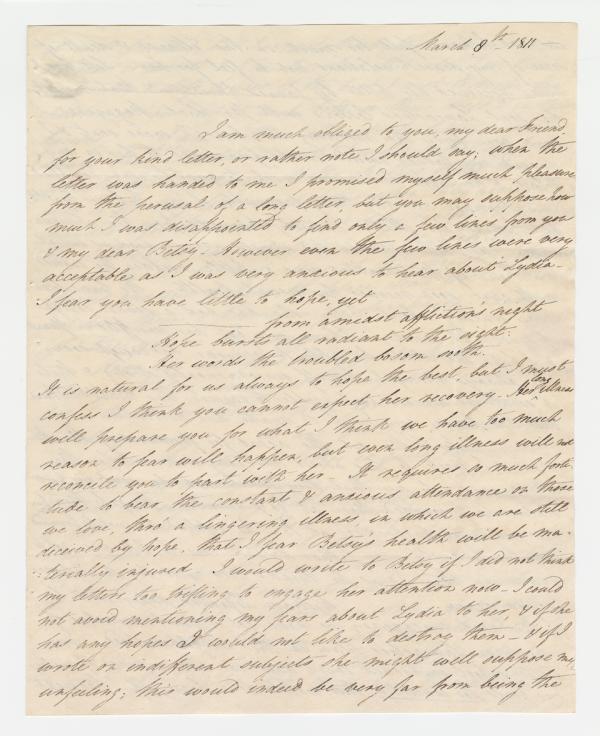 March 8th 1811 —
I am much obliged to you, my dear Friend
for your kind letter, or rather note I should say; when the
letter was handed to me I promised myself much pleasure
from the perusal of a long letter, but you may suppose how
much I was disappointed to find only a few lines from you
& my dear Betsy. However even the few lines were very
acceptable as I was very anxious to hear about Lydia —
I fear you have little to hope, yet
from amidst affliction's night
Hope bursts all radiant to the sight:
Her words the troubled bosom sooth.
It is natural for us always to hope the best, but I must
confess I think you cannot expect her recovery. Her long illness
will prepare you for what I think we have too much
reason to fear will happen, but even long illness will not
reconcile you to part with her. It requires so much forti-
tude to bear the constant & anxious attendance on those
we love, thro' a lingering illness, in which we are still
deceived by hope, that I fear Betsy's health will be ma-
terially injured. I would write to Betsy if I did not think
my letters too trifling to engage her attention now. I could
not avoid mentioning my fears about Lydia to her, & if she
has any hopes I would not like to destroy them — & if I
wrote on indifferent subjects she might well suppose me
unfeeling; this would indeed be very far from being the